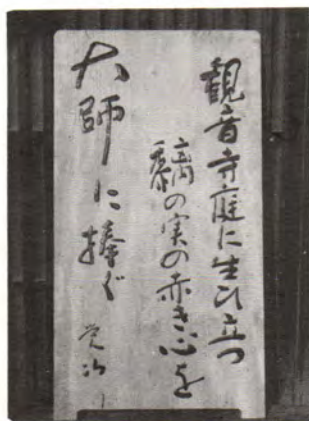 観音寺庭に生ひ立つ
黐の実の赤き心を
大師に捧ぐ